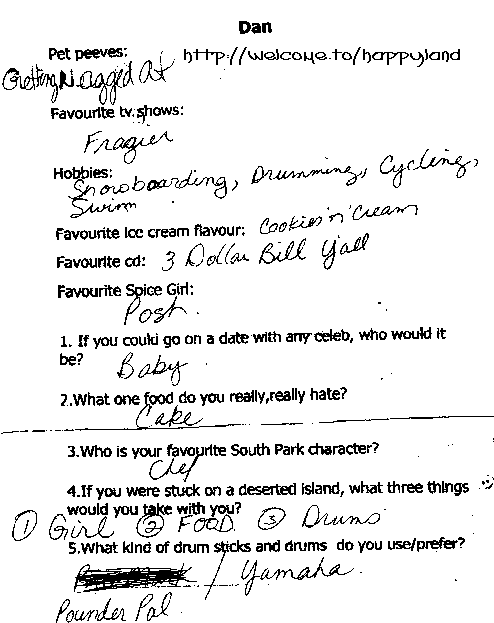 Dan
Pet peeves: http://welcome.to/happyland
Getting Nagged At
Favourite tv shows:
Fragier
Hobbies:
Snowboarding, Drumming, Cycling,
Swim
Favourite ice cream flavour: Cookies 'n' Cream
Favourite cd: 3 Dollar Bill Y'all
Favourite Spice Girl:
Posh.
1. If you could go on a date with any celeb, who would it
be? Baby
2.What one food do you really,really hate?
Cake
3.Who is your favourite South Park character?
Chef
4.If you were stuck on a deserted island, what three things
would you take with you?
① Girl ② FOOD ③ Drums
5.What kind of drum sticks and drums do you use/prefer?
/ Yamaha.
Pounder Pal.